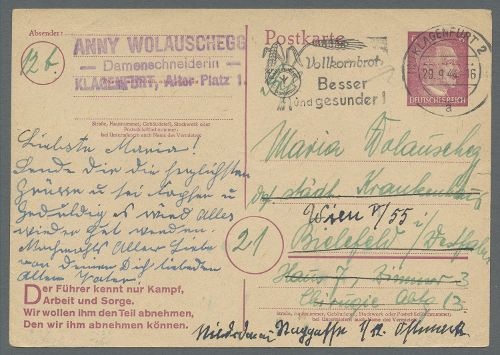 Absender:
ANNY WOLAUSCHEGG
— Damenschneiderin —
KLAGENFURT, Alter-Platz 1.
12b.
Straße, Hausnummer, Gebäudeteil, Stockwerk oder
Postschließfachnummer;
bei Untermietern auch Name des Vermieters
Liebste Maria!
Sende Dir die herzlichsten
Grüsse u sei tapfer u
Geduldig es wird alles
wieder gut werden.
Nochmals Alles Liebe
von Deinen Dich liebenden
Allen Vater.
Der Führer kennt nur Kampf,
Arbeit und Sorge.
Wir wollen ihm den Teil abnehmen,
Den wir ihm abnehmen können.
Postkarte
Vollkornbrot
Besser
und gesunder!
KLAGENFURT 2
29.9.44.-16
a
DEUTSCHES REICH
Maria Wolauscheg
städt. Krankenhaus
Wien V/55
21
Bielefeld i/Westfalen
Haus 7, Zimmer 3
Chirurgie Abtg
Straße, Hausnummer, Gebäudeteil, Stockwerk oder Postschließfachnummer;
bei Untermietern auch Name des Vermieters